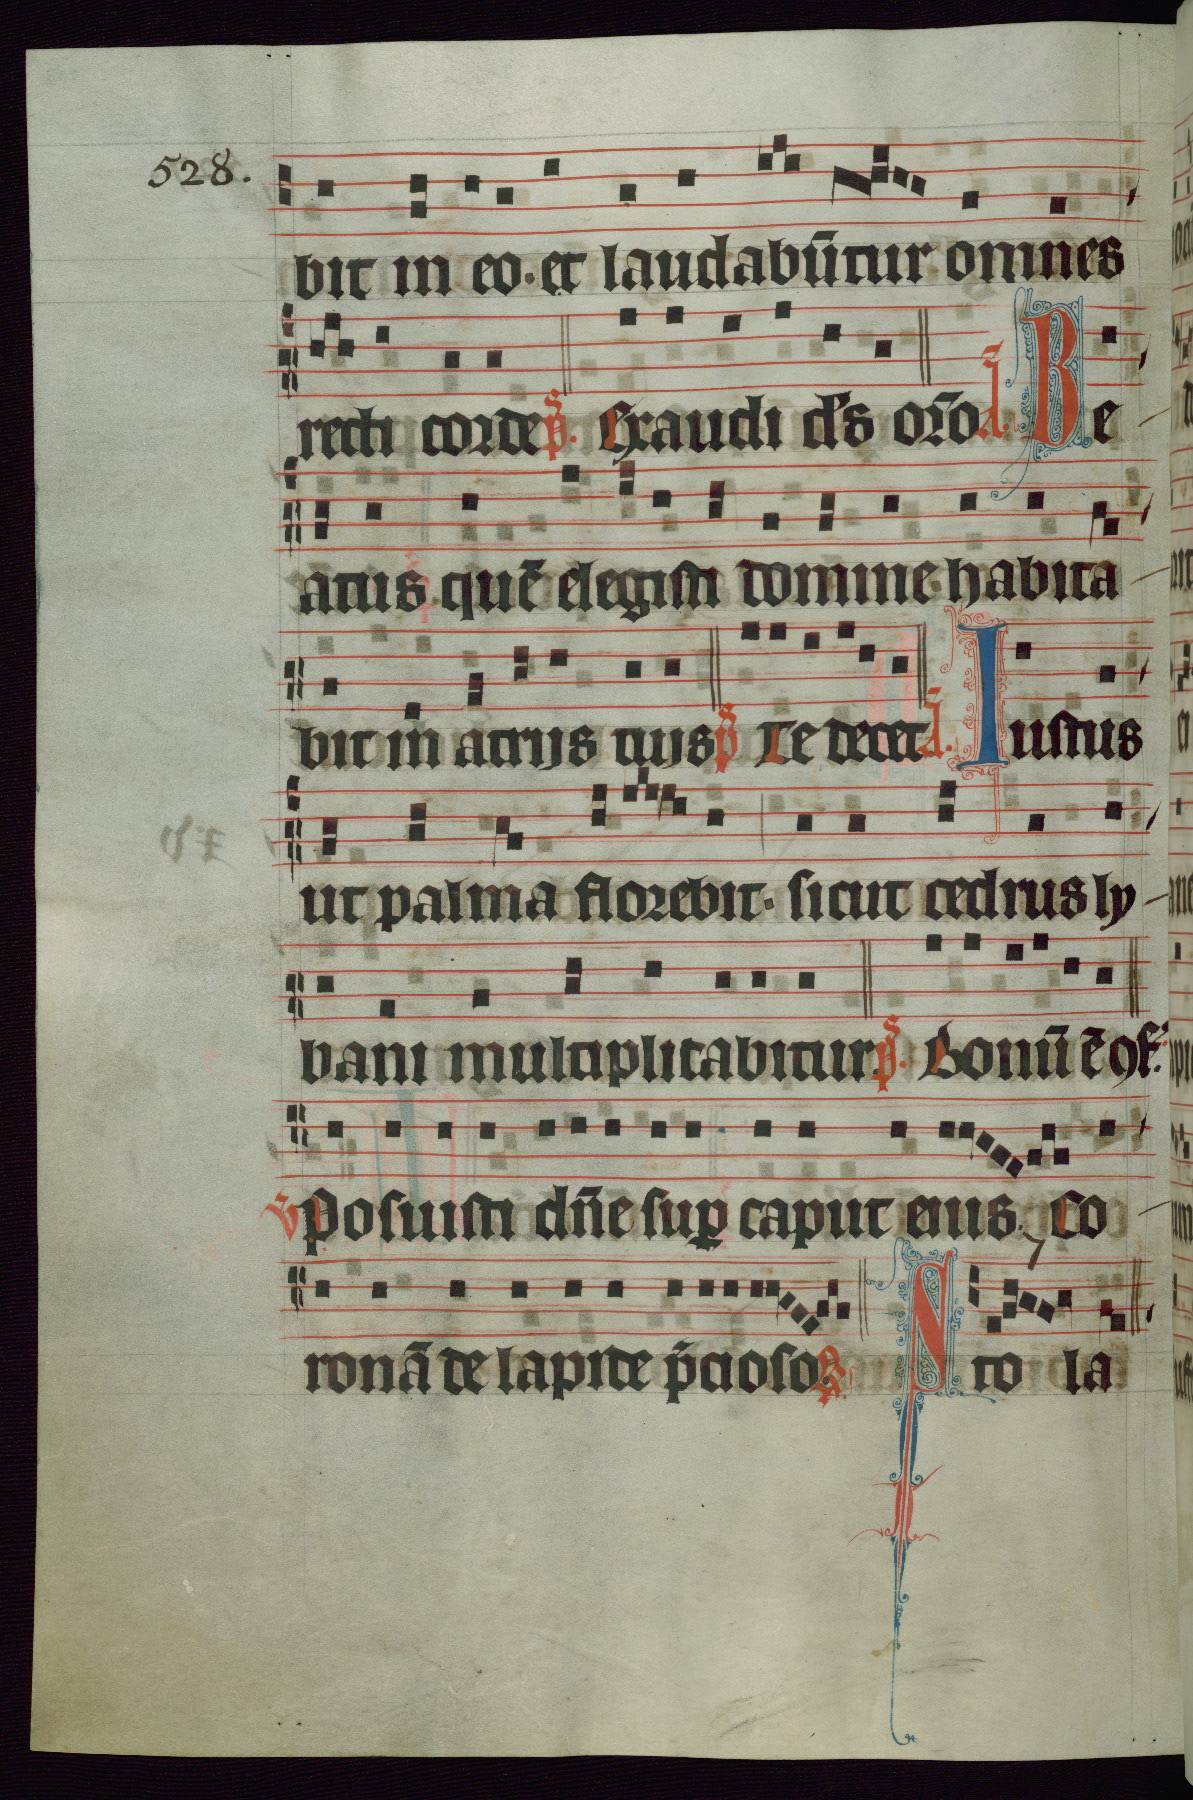 528.
bit in eo. et laudabūtur omnes
recti corde p̄s. Exaudi ds orōō ā. Be
atus quē elegisti domine habita
bit in atrijs tuis p̄s Te decet ā. Iustus
ut palma florebit. sicut cedrus ly
bani multiplicabitur p̄s. Bonū ē 9f.
v̄ Posuisti dn̄e sup caput eius. Co
ronā de lapide p̄cioso. R̄. Sto la